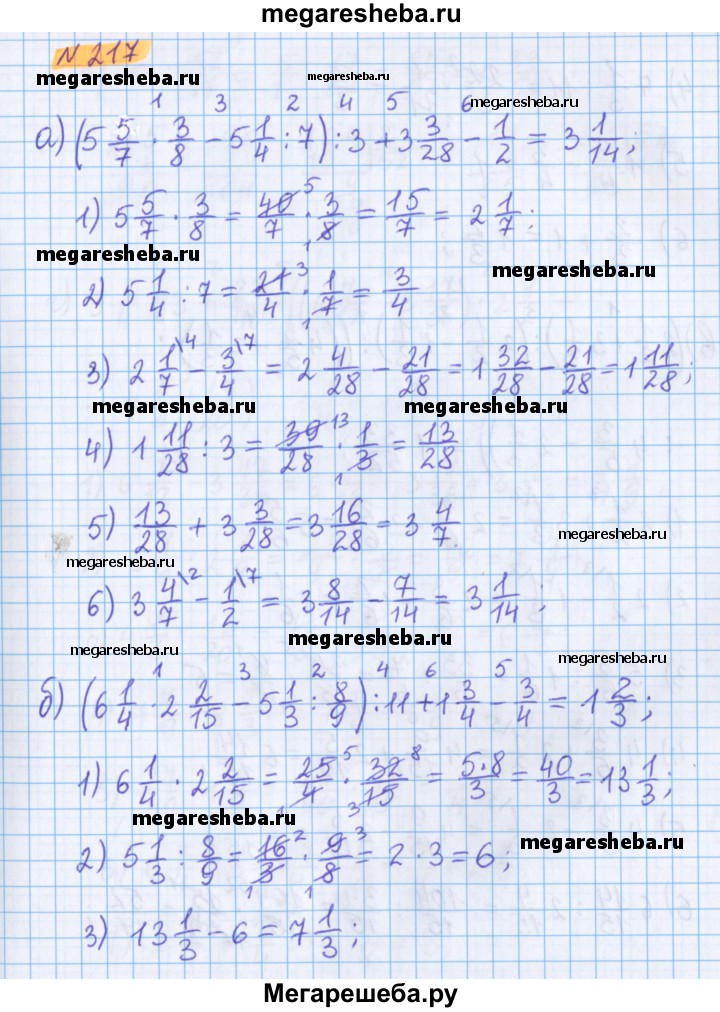 megaresheba.ru
N 217
megaresheba.ru megaresheba.ru megaresheba.ru
1 3 2 4 5 6
а) (5 5/7 · 3/8 − 5 1/4 : 7) : 3 + 3 3/28 − 1/2 = 3 1/14;
1) 5 5/7 · 3/8 = 40/7 5 · 3/8 1 = 15/7 = 2 1/7;
megaresheba.ru megaresheba.ru
2) 5 1/4 : 7 = 21/4 3 · 1/7 1 = 3/4
3) 2 1/7 \4 − 3/4 \7 = 2 4/28 − 21/28 = 1 32/28 − 21/28 = 1 11/28;
megaresheba.ru megaresheba.ru
4) 1 11/28 : 3 = 39/28 13 · 1/3 1 = 13/28
5) 13/28 + 3 3/28 = 3 16/28 = 3 4/7
megaresheba.ru megaresheba.ru
6) 3 4/7 \2 − 1/2 \7 = 3 8/14 − 7/14 = 3 1/14;
megaresheba.ru megaresheba.ru megaresheba.ru
1 3 2 4 6 5
б) (6 1/4 · 2 2/15 − 5 1/3 : 8/9) : 11 + 1 3/4 − 3/4 = 1 2/3;
1) 6 1/4 · 2 2/15 = 25/4 5 1 · 32/15 8 3 = 5·8/3 = 40/3 = 13 1/3;
megaresheba.ru megaresheba.ru
2) 5 1/3 : 8/9 = 16/3 2 1 · 9/8 3 1 = 2 · 3 = 6;
3) 13 1/3 − 6 = 7 1/3;
Мегарешеба.ру